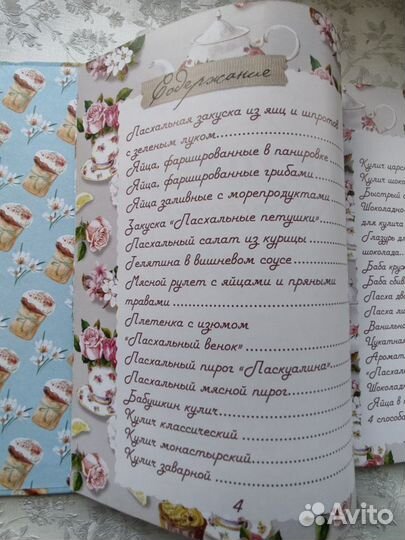 Содержание
Пасхальная закуска из яиц и шпротов
с зеленым луком
Яйца, фаршированные в панировке
Яйца, фаршированные грибами
Яйца заливные с морепродуктами
Закуска «Пасхальные петушки»
Пасхальный салат из курицы
Телятина в вишневом соусе
Мясной рулет с яйцами и пряными
травами
Плетенка с изюмом
«Пасхальный венок»
Пасхальный пирог "Паскуалина"
Пасхальный мясной пирог
Бабушкин кулич
Кулич классический
Кулич монастырский
Кулич заварной
4
Кулич царс
Кулич шоко
Быстрый
Шоколадно-
для кулича
Глазурь
шоколада
Баба круж
Баба сбив
Пасха
Пасха
Ванильно
Цукатная
Аромат
«Пасха
Шоколад
Яйца в
4 способа
Avito